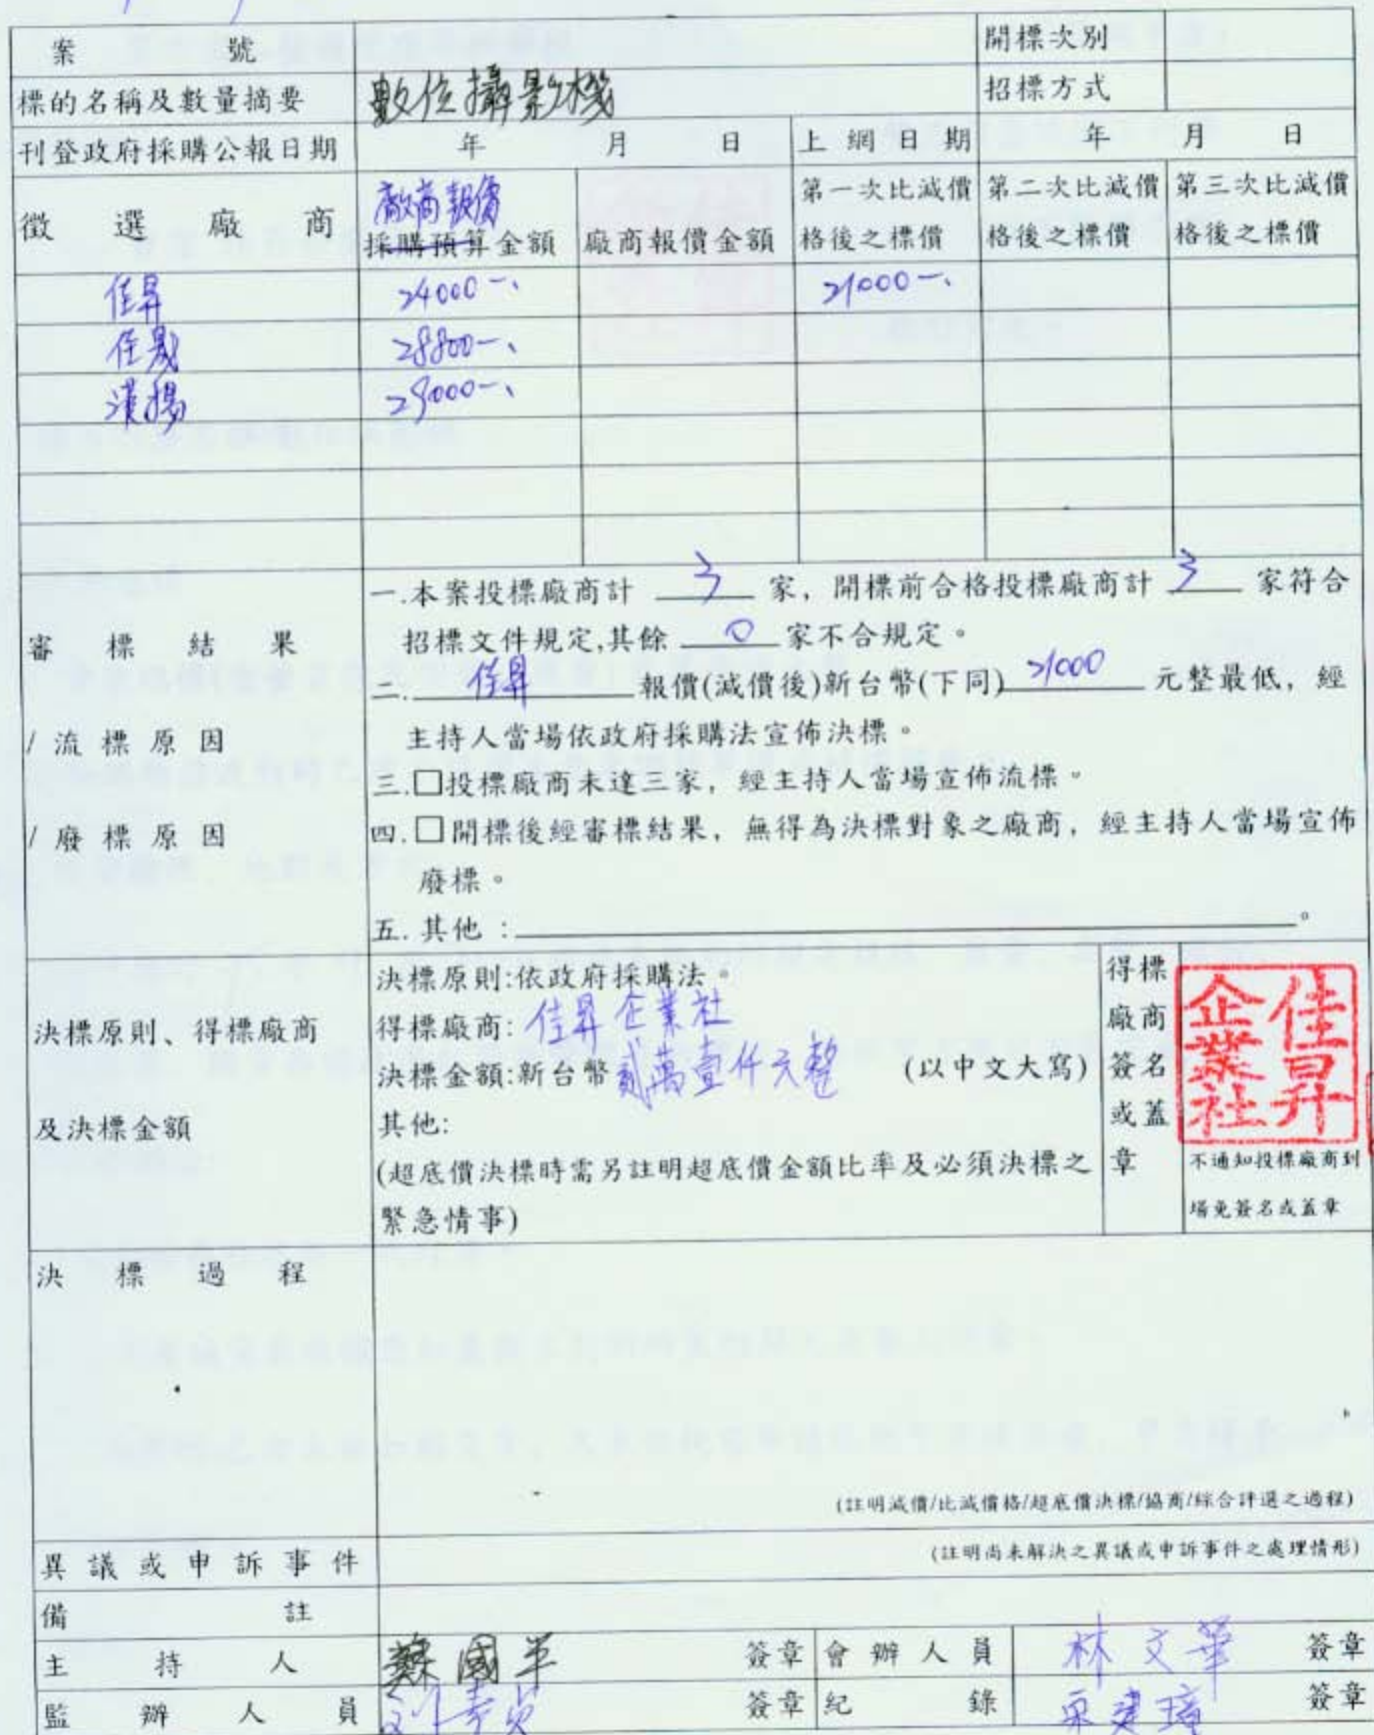 案 號 開標次別
標的名稱及數量摘要 數位攝影機 招標方式
刊登政府採購公報日期 年 月 日 上網日期 年 月 日
徵選廠商 廠商報價 採購預算金額 廠商報價金額 第一次比減價格後之標價 第二次比減價格後之標價 第三次比減價格後之標價
佳昇 24000-、 21000-、
佳晟 28800-、
漢揚 29000-、
審標結果
/流標原因
/廢標原因
一.本案投標廠商計 3 家，開標前合格投標廠商計 3 家符合
招標文件規定,其餘 0 家不合規定。
二. 佳昇 報價(減價後)新台幣(下同) 21000 元整最低，經
主持人當場依政府採購法宣佈決標。
三.□投標廠商未達三家，經主持人當場宣佈流標。
四.□開標後經審標結果，無得為決標對象之廠商，經主持人當場宣佈
廢標。
五.其他：。
決標原則、得標廠商
及決標金額
決標原則:依政府採購法。
得標廠商:佳昇企業社
決標金額:新台幣貳萬壹仟元整 (以中文大寫)
其他:
(超底價決標時需另註明超底價金額比率及必須決標之
緊急情事)
得標
廠商
簽名
或蓋
章
佳昇
企業社
不通知投標廠商到
場免簽名或蓋章
決標過程
(註明減價/比減價格/超底價決標/協商/綜合評選之過程)
異議或申訴事件 (註明尚未解決之異議或申訴事件之處理情形)
備註
主持人 簽章 會辦人員 林文華 簽章
監辦人員 簽章 紀錄 簽章